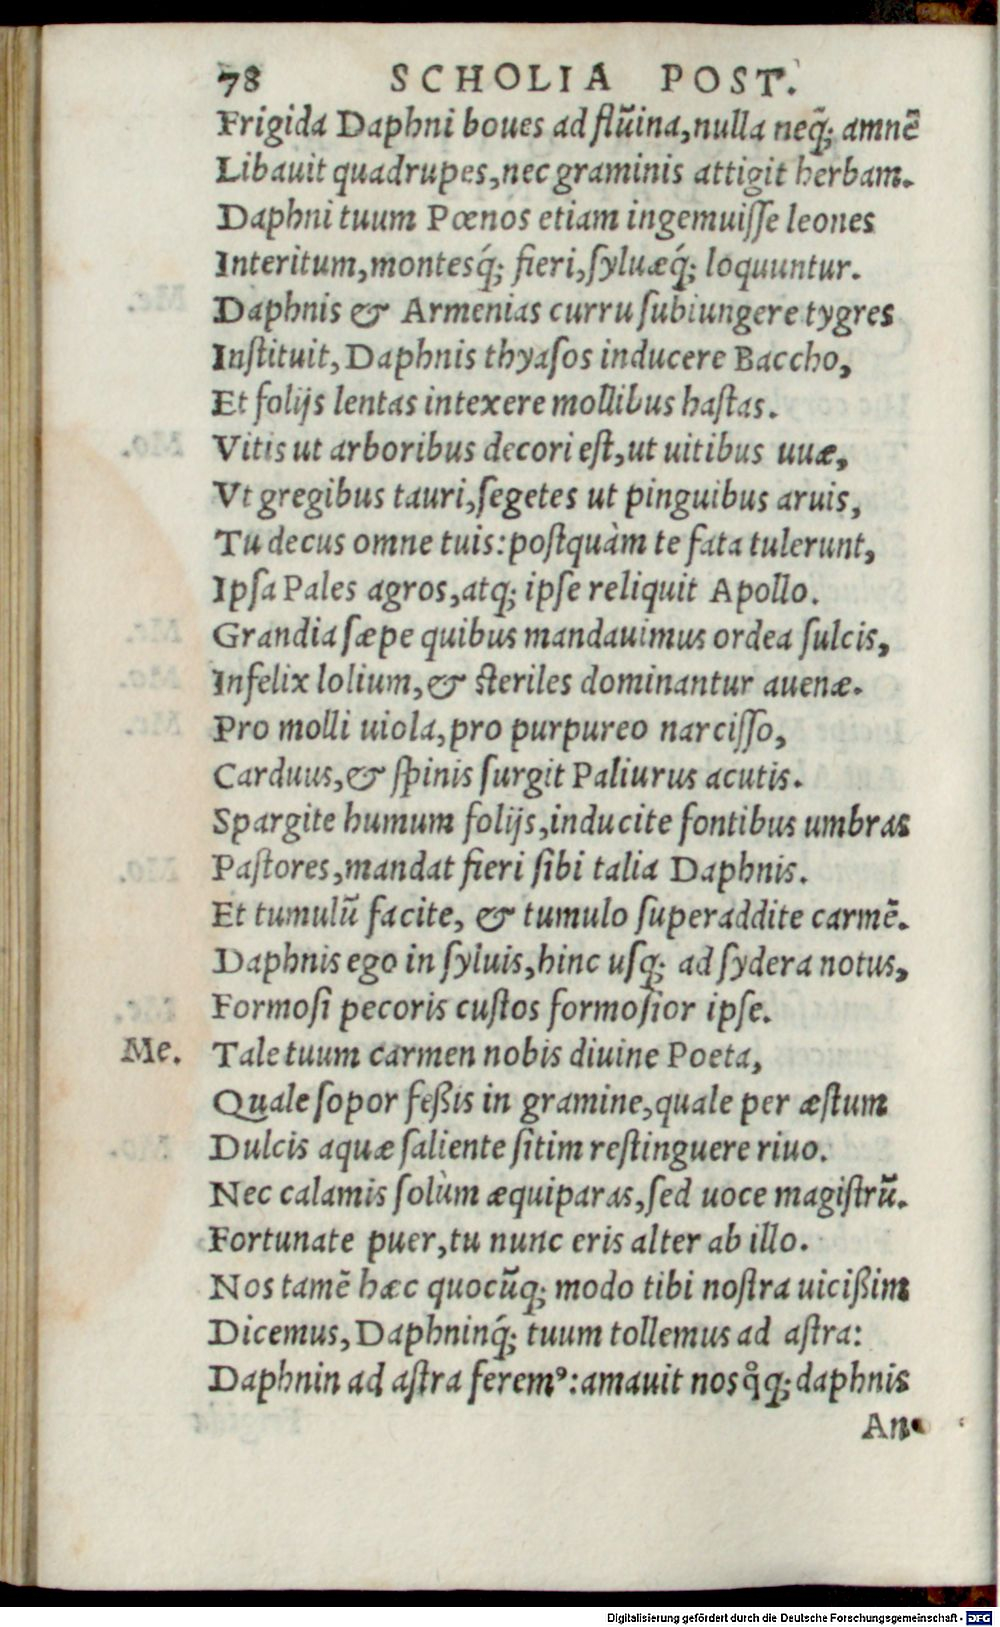 78 SCHOLIA POST.
Frigida Daphni boues ad flũina,nulla neq̃; amnẽ
Libauit quadrupes,nec graminis attigit herbam.
Daphni tuum Pœnos etiam ingemuiſſe leones
Interitum,montesq́; fieri,ſyluæq́; loquuntur.
Daphnis & Armenias curru ſubiungere tygres
Inſtituit,Daphnis thyaſos inducere Baccho,
Et folijs lentas intexere mollibus haſtas.
Vitis ut arboribus decori eſt,ut uitibus uuæ,
Vt gregibus tauri,ſegetes ut pinguibus aruis,
Tu decus omne tuis:poſtquàm te fata tulerunt,
Ipſa Pales agros,atq; ipſe reliquit Apollo.
Grandia ſæpe quibus mandauimus ordea ſulcis,
Infelix lolium,& ſteriles dominantur auenæ.
Pro molli uiola,pro purpureo narciſſo,
Carduus,& ſpinis ſurgit Paliurus acutis.
Spargite humum folijs,inducite fontibus umbras
Paſtores,mandat fieri ſibi talia Daphnis.
Et tumulũ facite, & tumulo ſuperaddite carmẽ.
Daphnis ego in ſyluis,hinc uſq; ad ſydera notus,
Formoſi pecoris cuſtos formoſior ipſe.
Me. Tale tuum carmen nobis diuine Poeta,
Quale ſopor feßis in gramine,quale per æſtum
Dulcis aquæ ſaliente ſitim reſtinguere riuo.
Nec calamis ſolùm æquiparas,ſed uoce magiſtrũ.
Fortunate puer,tu nunc eris alter ab illo.
Nos tamẽ hæc quocũq; modo tibi noſtra uicißim
Dicemus,Daphninq́; tuum tollemus ad aſtra:
Daphnin ad aſtra ferem⁹:amauit nos q̊q;daphnis
An-
Digitalisierung gefördert durch die Deutsche Forschungsgemeinschaft - DFG